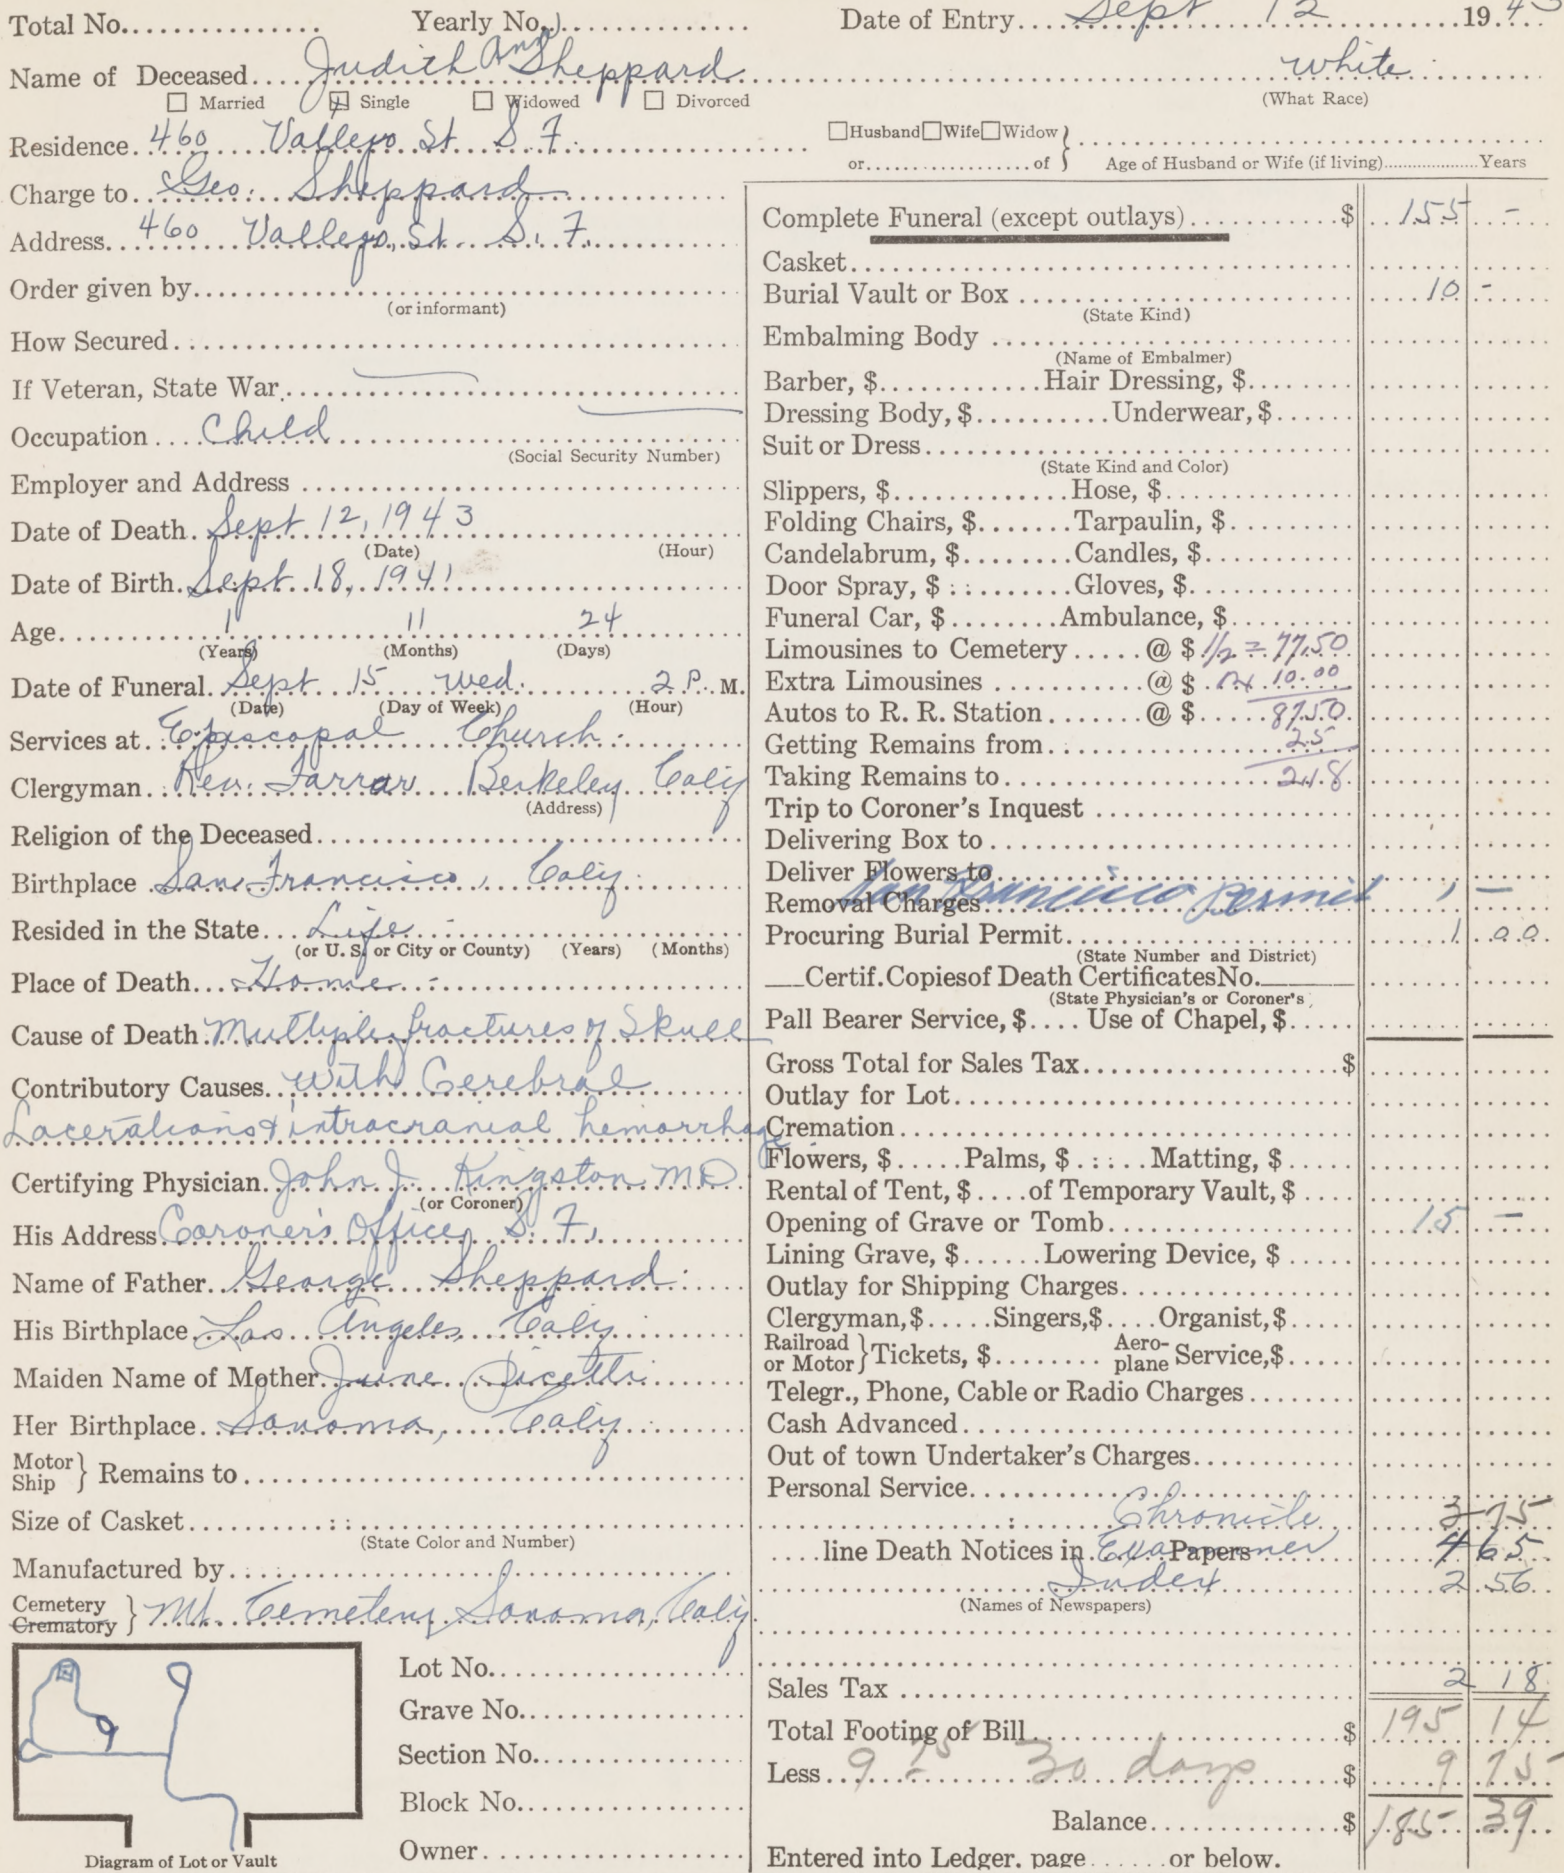 Total No. Yearly No. Date of Entry Sept 12 19 43
Name of Deceased Judith Ann Sheppard white
☐ Married ☒ Single ☐ Widowed ☐ Divorced (What Race)
Residence 460 Vallejo St S. F.
☐ Husband ☐ Wife ☐ Widow }
or of } Age of Husband or Wife (if living) Years
Charge to Geo. Sheppard
Address 460 Vallejo St. S. F.
Order given by
(or informant)
How Secured
If Veteran, State War
Occupation Child
(Social Security Number)
Employer and Address
Date of Death Sept 12, 1943
(Date) (Hour)
Date of Birth Sept 18, 1941
Age 1 11 24
(Years) (Months) (Days)
Date of Funeral Sept 15 Wed. 2 P. M.
(Date) (Day of Week) (Hour)
Services at Episcopal Church
Clergyman Rev. Farrar Berkeley Calif
(Address)
Religion of the Deceased
Birthplace San Francisco, Calif
Resided in the State Life
(or U. S. or City or County) (Years) (Months)
Place of Death Home
Cause of Death Multiple fractures of Skull
Contributory Causes With Cerebral
Lacerations & intracranial hemorrhage
Certifying Physician John J. Kingston MD
(or Coroner)
His Address Coroner's Office, S. F.
Name of Father George Sheppard
His Birthplace Los Angeles, Calif
Maiden Name of Mother June
Her Birthplace Sonoma, Calif
Motor
Ship } Remains to
Size of Casket
(State Color and Number)
Manufactured by
Cemetery
Crematory } Mt. Cemetery Sonoma, Calif
Lot No.
Grave No.
Section No.
Block No.
Owner
Diagram of Lot or Vault
Complete Funeral (except outlays) $ 155 -
Casket
Burial Vault or Box 10 -
(State Kind)
Embalming Body
(Name of Embalmer)
Barber, $ Hair Dressing, $
Dressing Body, $ Underwear, $
Suit or Dress
(State Kind and Color)
Slippers, $ Hose, $
Folding Chairs, $ Tarpaulin, $
Candelabrum, $ Candles, $
Door Spray, $ Gloves, $
Funeral Car, $ Ambulance, $
Limousines to Cemetery @ $ 1/2 = 77.50
Extra Limousines @ $ 10.00
Autos to R. R. Station @ $ 87.50
Getting Remains from 25
Taking Remains to 2.18
Trip to Coroner's Inquest
Delivering Box to
Deliver Flowers to
San Francisco Permit 1 -
Removal Charges
Procuring Burial Permit 1 00
(State Number and District)
Certif. Copies of Death Certificates No.
(State Physician's or Coroner's
Pall Bearer Service, $ Use of Chapel, $
Gross Total for Sales Tax $
Outlay for Lot
Cremation
Flowers, $ Palms, $ Matting, $
Rental of Tent, $ of Temporary Vault, $
Opening of Grave or Tomb 15 -
Lining Grave, $ Lowering Device, $
Outlay for Shipping Charges
Clergyman, $ Singers, $ Organist, $
Railroad
or Motor } Tickets, $ Aero-
plane Service, $
Telegr., Phone, Cable or Radio Charges
Cash Advanced
Out of town Undertaker's Charges
Personal Service
Chronicle 3 75
line Death Notices in Papers Examiner 4 65
Index 2 56
(Names of Newspapers)
Sales Tax 2 18
Total Footing of Bill $ 195 14
Less 9 75 30 days $ 9 75
Balance $ 185 39
Entered into Ledger, page or below.